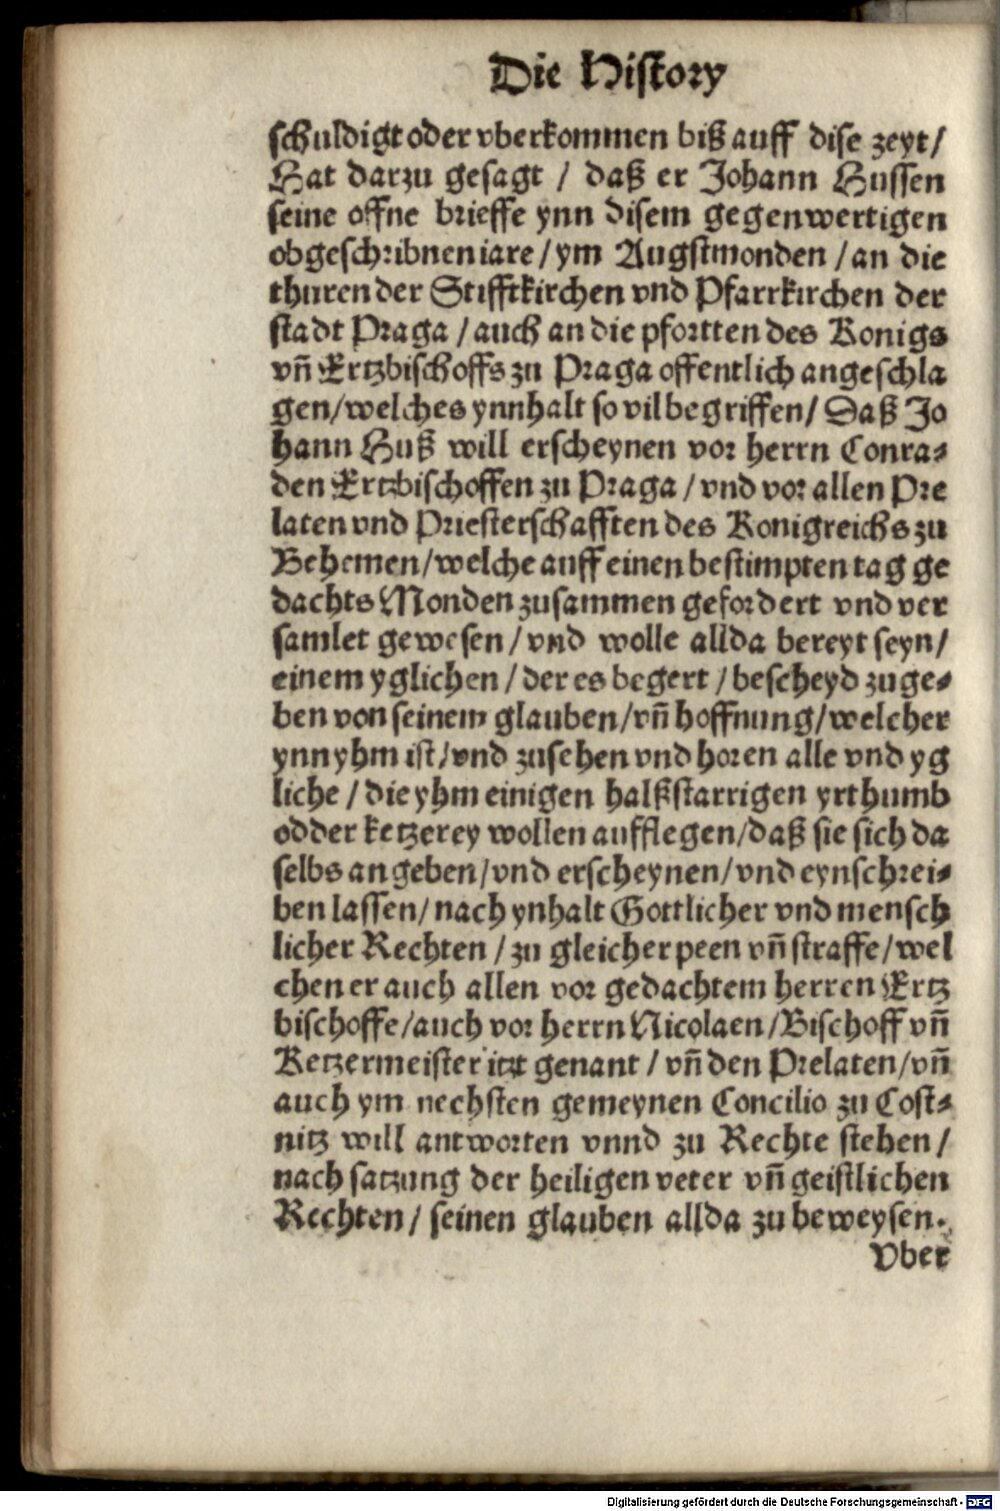 Die History
schuldigt oder vberkommen biß auff dise zeyt/
Hat darzu gesagt / daß er Johann Hussen
seine offne brieffe ynn disem gegenwertigen
obgeschribnen iare / ym Augstmonden / an die
thuren der Stifftkirchen vnd Pfarrkirchen der
stadt Praga / auch an die pfortten des Konigs
vñ Ertzbischoffs zu Praga offentlich angeschla
gen/welches ynnhalt so vil begriffen/ Daß Jo
hann Huß will erscheynen vor herrn Conra⸗
den Ertzbischoffen zu Praga / vnd vor allen Pre
laten vnd Priesterschafften des Konigreichs zu
Behemen/welche auff einen bestimpten tag ge
dachts Monden zusammen gefordert vnd ver
samlet gewesen / vnd wolle allda bereyt seyn/
einem yglichen / der es begert / bescheyd zuge⸗
ben von seinem glauben/vñ hoffnung/welcher
ynn yhm ist/vnd zusehen vnd horen alle vnd yg
liche / die yhm einigen halßstarrigen yrthumb
odder ketzerey wollen aufflegen/daß sie sich da
selbs angeben/vnd erscheynen/vnd eynschrei⸗
ben lassen/ nach ynhalt Gottlicher vnd mensch
licher Rechten / zu gleicher peen vñ straffe/wel
chen er auch allen vor gedachtem herren Ertz
bischoffe/auch vor herrn Nicolaen/Bischoff vñ
Ketzermeister itzt genant / vñ den Prelaten/vñ
auch ym nechsten gemeynen Concilio zu Cost⸗
nitz will antworten vnnd zu Rechte stehen/
nach satzung der heiligen veter vñ geistlichen
Rechten / seinen glauben allda zu beweysen.
Vber
Digitalisierung gefördert durch die Deutsche Forschungsgemeinschaft - DFG